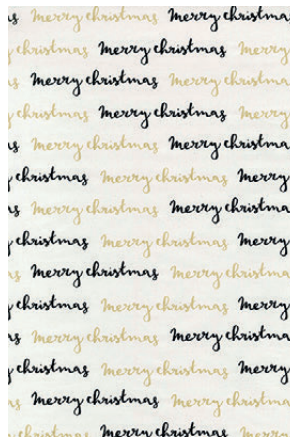 s merry christmas merry christma
y christmas merry christmas merry
s merry christmas merry christma
y christmas merry christmas merry
s merry christmas merry christma
y christmas merry christmas merry
s merry christmas merry christma
y christmas merry christmas merry
s merry christmas merry christma
y christmas merry christmas merry
s merry christmas merry christma
y christmas merry christmas merry
s merry christmas merry christma
y christmas merry christmas merry